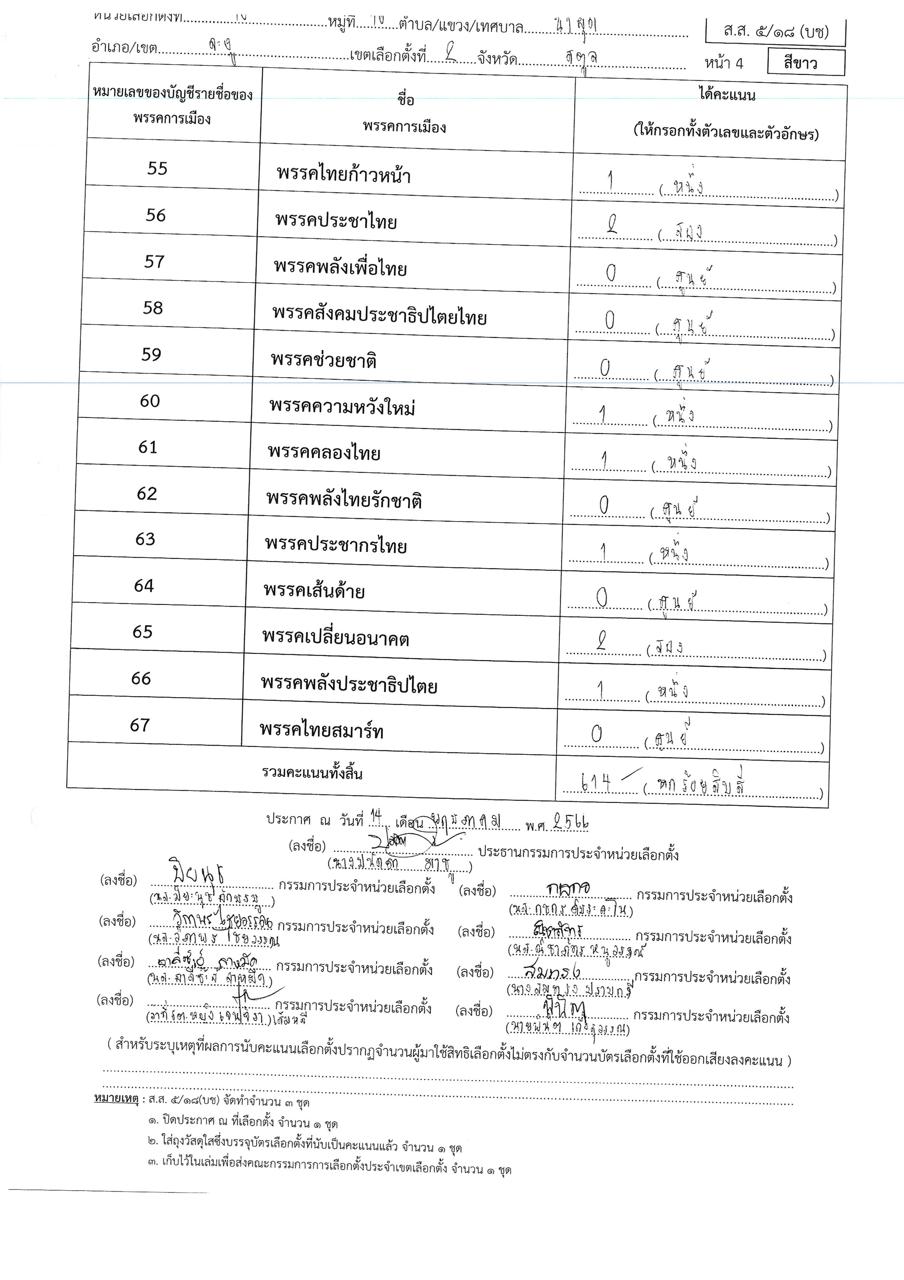 หน่วยเลือกตั้งที่ 10 หมู่ที่ 10 ตำบล/แขวง/เทศบาล
ส.ส. ๕/๑๘ (บช)
อำเภอ/เขต ละงู เขตเลือกตั้งที่ 2 จังหวัด สตูล หน้า 4 สีขาว
หมายเลขของบัญชีรายชื่อของพรรคการเมือง ชื่อพรรคการเมือง ได้คะแนน (ให้กรอกทั้งตัวเลขและตัวอักษร)
55 พรรคไทยก้าวหน้า 1 (หนึ่ง)
56 พรรคประชาไทย 2 (สอง)
57 พรรคพลังเพื่อไทย 0 (ศูนย์)
58 พรรคสังคมประชาธิปไตยไทย 0 (ศูนย์)
59 พรรคช่วยชาติ 0 (ศูนย์)
60 พรรคความหวังใหม่ 1 (หนึ่ง)
61 พรรคคลองไทย 1 (หนึ่ง)
62 พรรคพลังไทยรักชาติ 0 (ศูนย์)
63 พรรคประชากรไทย 1 (หนึ่ง)
64 พรรคเส้นด้าย 0 (ศูนย์)
65 พรรคเปลี่ยนอนาคต 2 (สอง)
66 พรรคพลังประชาธิปไตย 1 (หนึ่ง)
67 พรรคไทยสมาร์ท 0 (ศูนย์)
รวมคะแนนทั้งสิ้น 614 (หกร้อยสิบสี่)
ประกาศ ณ วันที่ 14 เดือน พฤษภาคม พ.ศ. 2566
(ลงชื่อ) ประธานกรรมการประจำหน่วยเลือกตั้ง
(ลงชื่อ) ปิยนุช กรรมการประจำหน่วยเลือกตั้ง (ลงชื่อ) กรรมการประจำหน่วยเลือกตั้ง
(ลงชื่อ) กรรมการประจำหน่วยเลือกตั้ง (ลงชื่อ) กรรมการประจำหน่วยเลือกตั้ง
(ลงชื่อ) กรรมการประจำหน่วยเลือกตั้ง (ลงชื่อ) สมทรง กรรมการประจำหน่วยเลือกตั้ง
(ลงชื่อ) กรรมการประจำหน่วยเลือกตั้ง (ลงชื่อ) กรรมการประจำหน่วยเลือกตั้ง
( สำหรับระบุเหตุที่ผลการนับคะแนนเลือกตั้งปรากฏจำนวนผู้มาใช้สิทธิเลือกตั้งไม่ตรงกับจำนวนบัตรเลือกตั้งที่ใช้ออกเสียงลงคะแนน )
หมายเหตุ : ส.ส. ๕/๑๘(บช) จัดทำจำนวน ๓ ชุด
๑. ปิดประกาศ ณ ที่เลือกตั้ง จำนวน ๑ ชุด
๒. ใส่ถุงวัสดุใสซึ่งบรรจุบัตรเลือกตั้งที่นับเป็นคะแนนแล้ว จำนวน ๑ ชุด
๓. เก็บไว้ในเล่มเพื่อส่งคณะกรรมการการเลือกตั้งประจำเขตเลือกตั้ง จำนวน ๑ ชุด